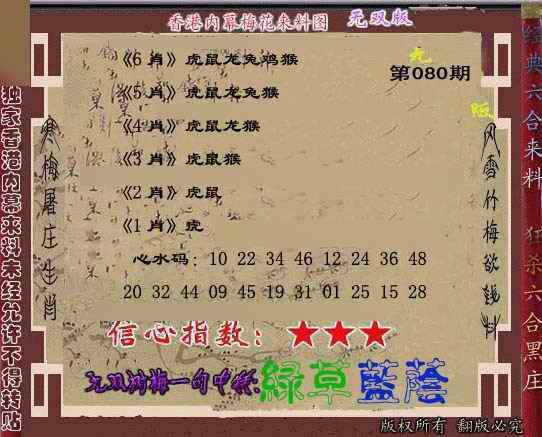 香港内幕梅花来料图 无双版
《6 肖》虎鼠龙兔鸡猴
第080期
《5 肖》虎鼠龙兔猴
《4 肖》虎鼠龙猴
《3 肖》虎鼠猴
《2 肖》虎鼠
《1 肖》虎
心水码：10 22 34 46 12 24 36 48
20 32 44 09 45 19 31 01 25 15 28
信心指数：★★★
一句中特:綠草藍蔭
版权所有 翻版必究
独家香港内幕来料未经允许不得转贴
寒梅屠庄生肖
无
版
风雪竹梅欲钱料
经典六合来料
狂杀六合黑庄